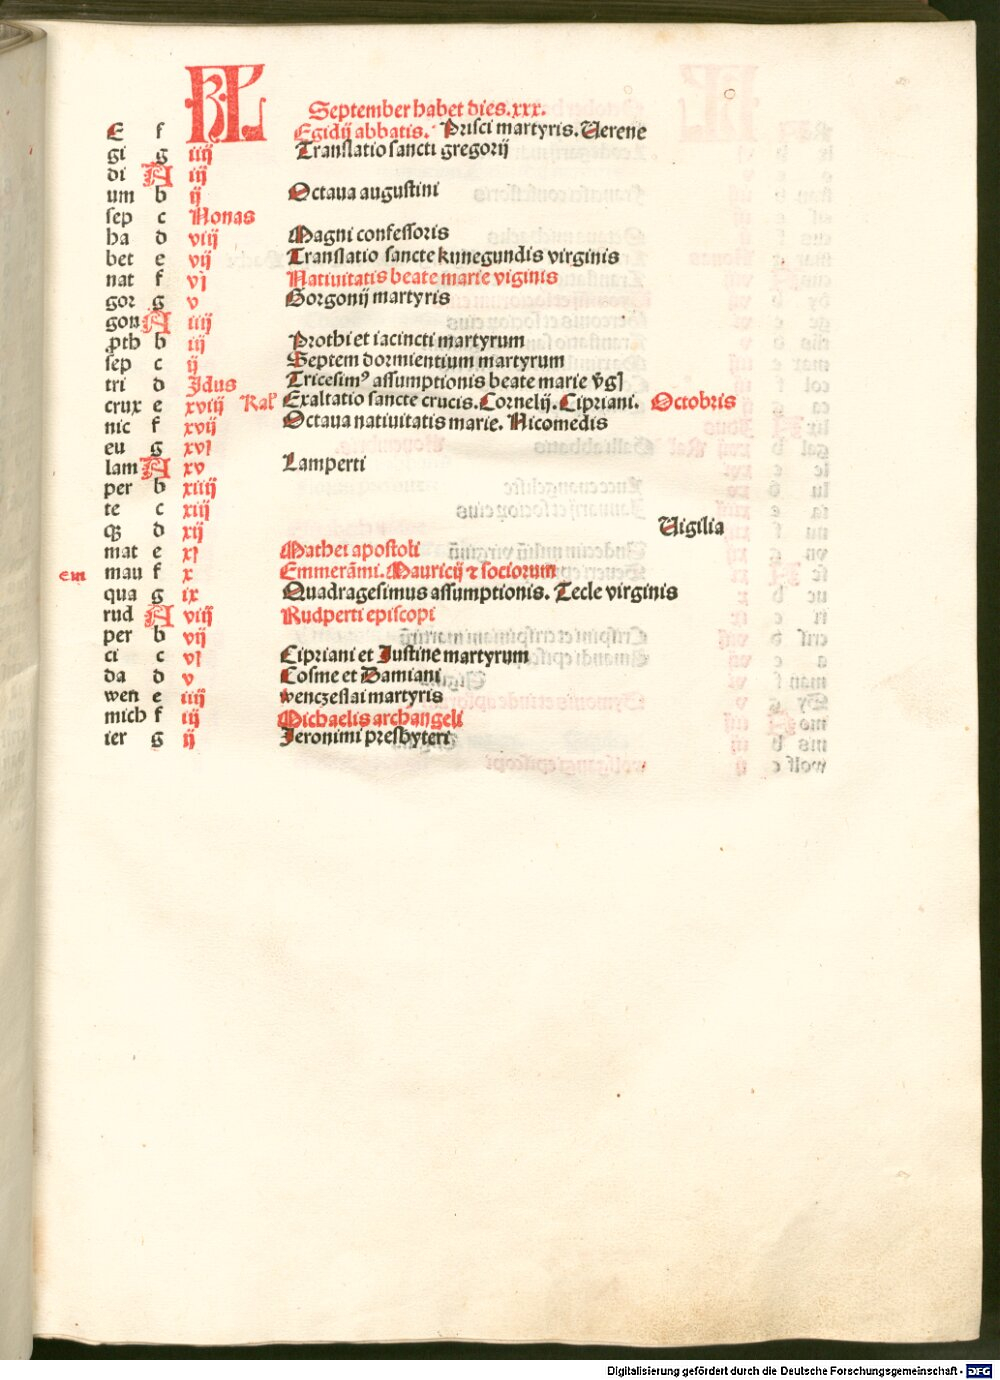 KL September habet dies.xxx.
E f Egidij abbatis. Prisci martyris. Verene
gi g iiij Translatio sancti gregorij
di A iij
um b ij Octaua augustini
sep c Nonas
ha d viij Magni confessoris
bet e vij Translatio sancte kunegundis virginis
nat f vj Natiuitatis beate marie viginis
gor g v Gorgonij martyris
gon A iiij
proth b iij Prothi et iacincti martyrum
sep c ij Septem dormientium martyrum
tri d Jdus Tricesimꝰ assumptionis beate marie v̄gl
crux e xviij Kal' Exaltatio sancte crucis. Cornelij. Cipriani. Octobris
nic f xvij Octaua natiuitatis marie. Nicomedis
eu g xvj
lam A xv Lamperti
per b xiiij
te c xiij
qȝ d xij Vigilia
mat e xj Mathei apostoli
em mau f x Emmerāmi. Mauricij ⁊ sociorum
qua g ix Quadragesimus assumptionis. Tecle virginis
rud A viij Rudperti episcopi
per b vij
ci c vj Cipriani et Justine martyrum
da d v Cosme et Damiani
wen e iiij wenczeslai martyris
mich f iij Michaelis archangeli
ier g ij Jeronimi presbyteri
Digitalisierung gefördert durch die Deutsche Forschungsgemeinschaft - DFG